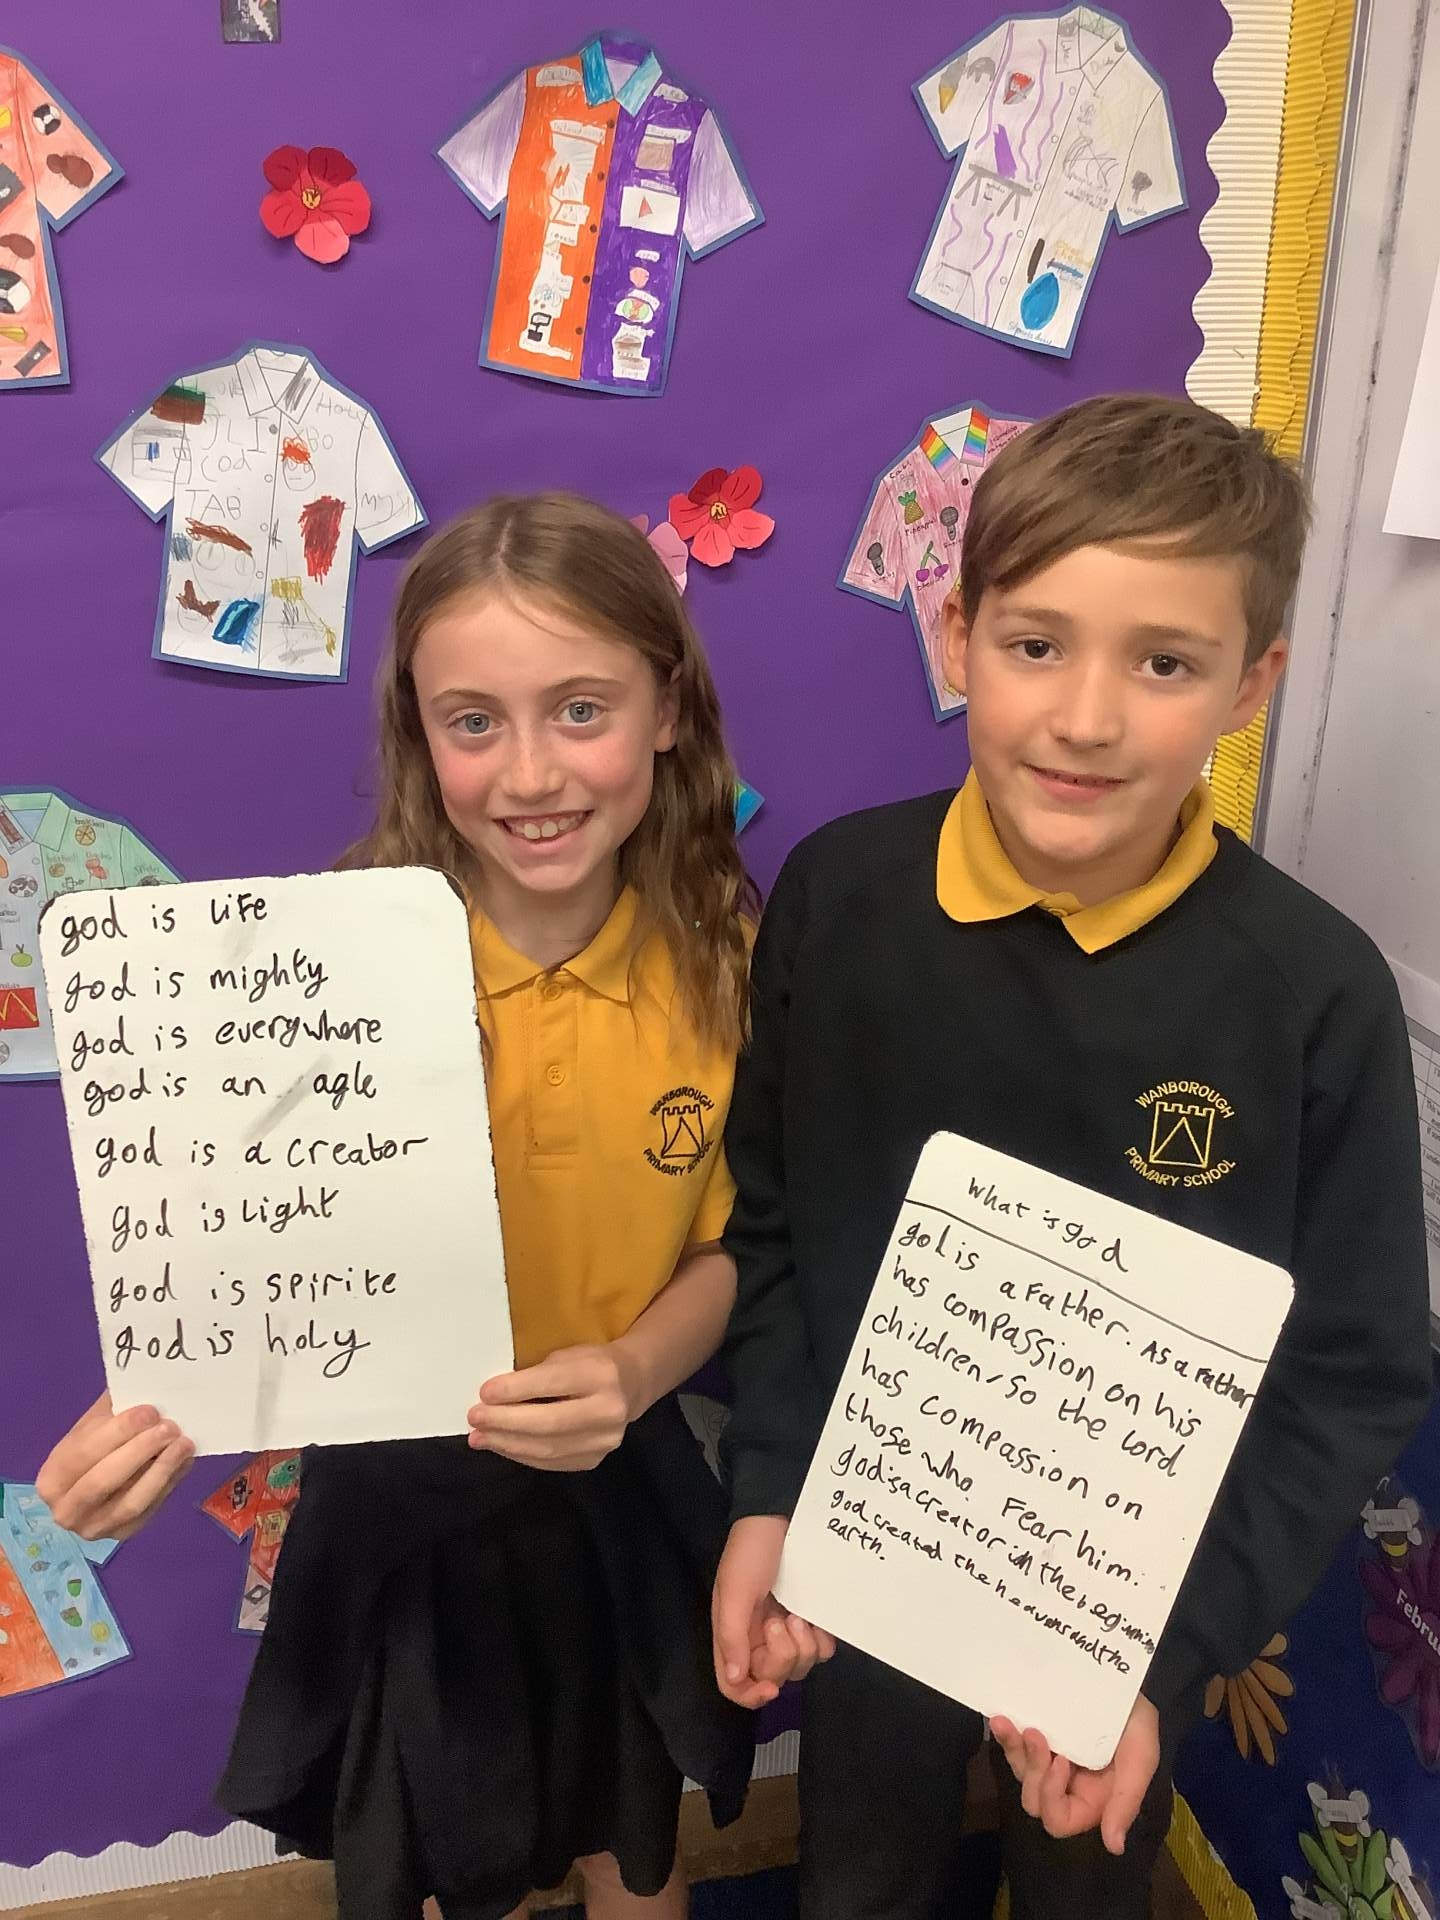 god is life
god is mighty
god is everywhere
god is an agle
god is a creator
god is light
god is spirite
god is holy
WANBOROUGH
PRIMARY SCHOOL
What is god
god is a Father. As a Father
has compassion on his
children, so the lord
has compassion on
those who Fear him.
god is a creator in the beginning
god created the heavens and the
earth.
WANBOROUGH
PRIMARY SCHOOL
JLI
Cod
TAB
Februa